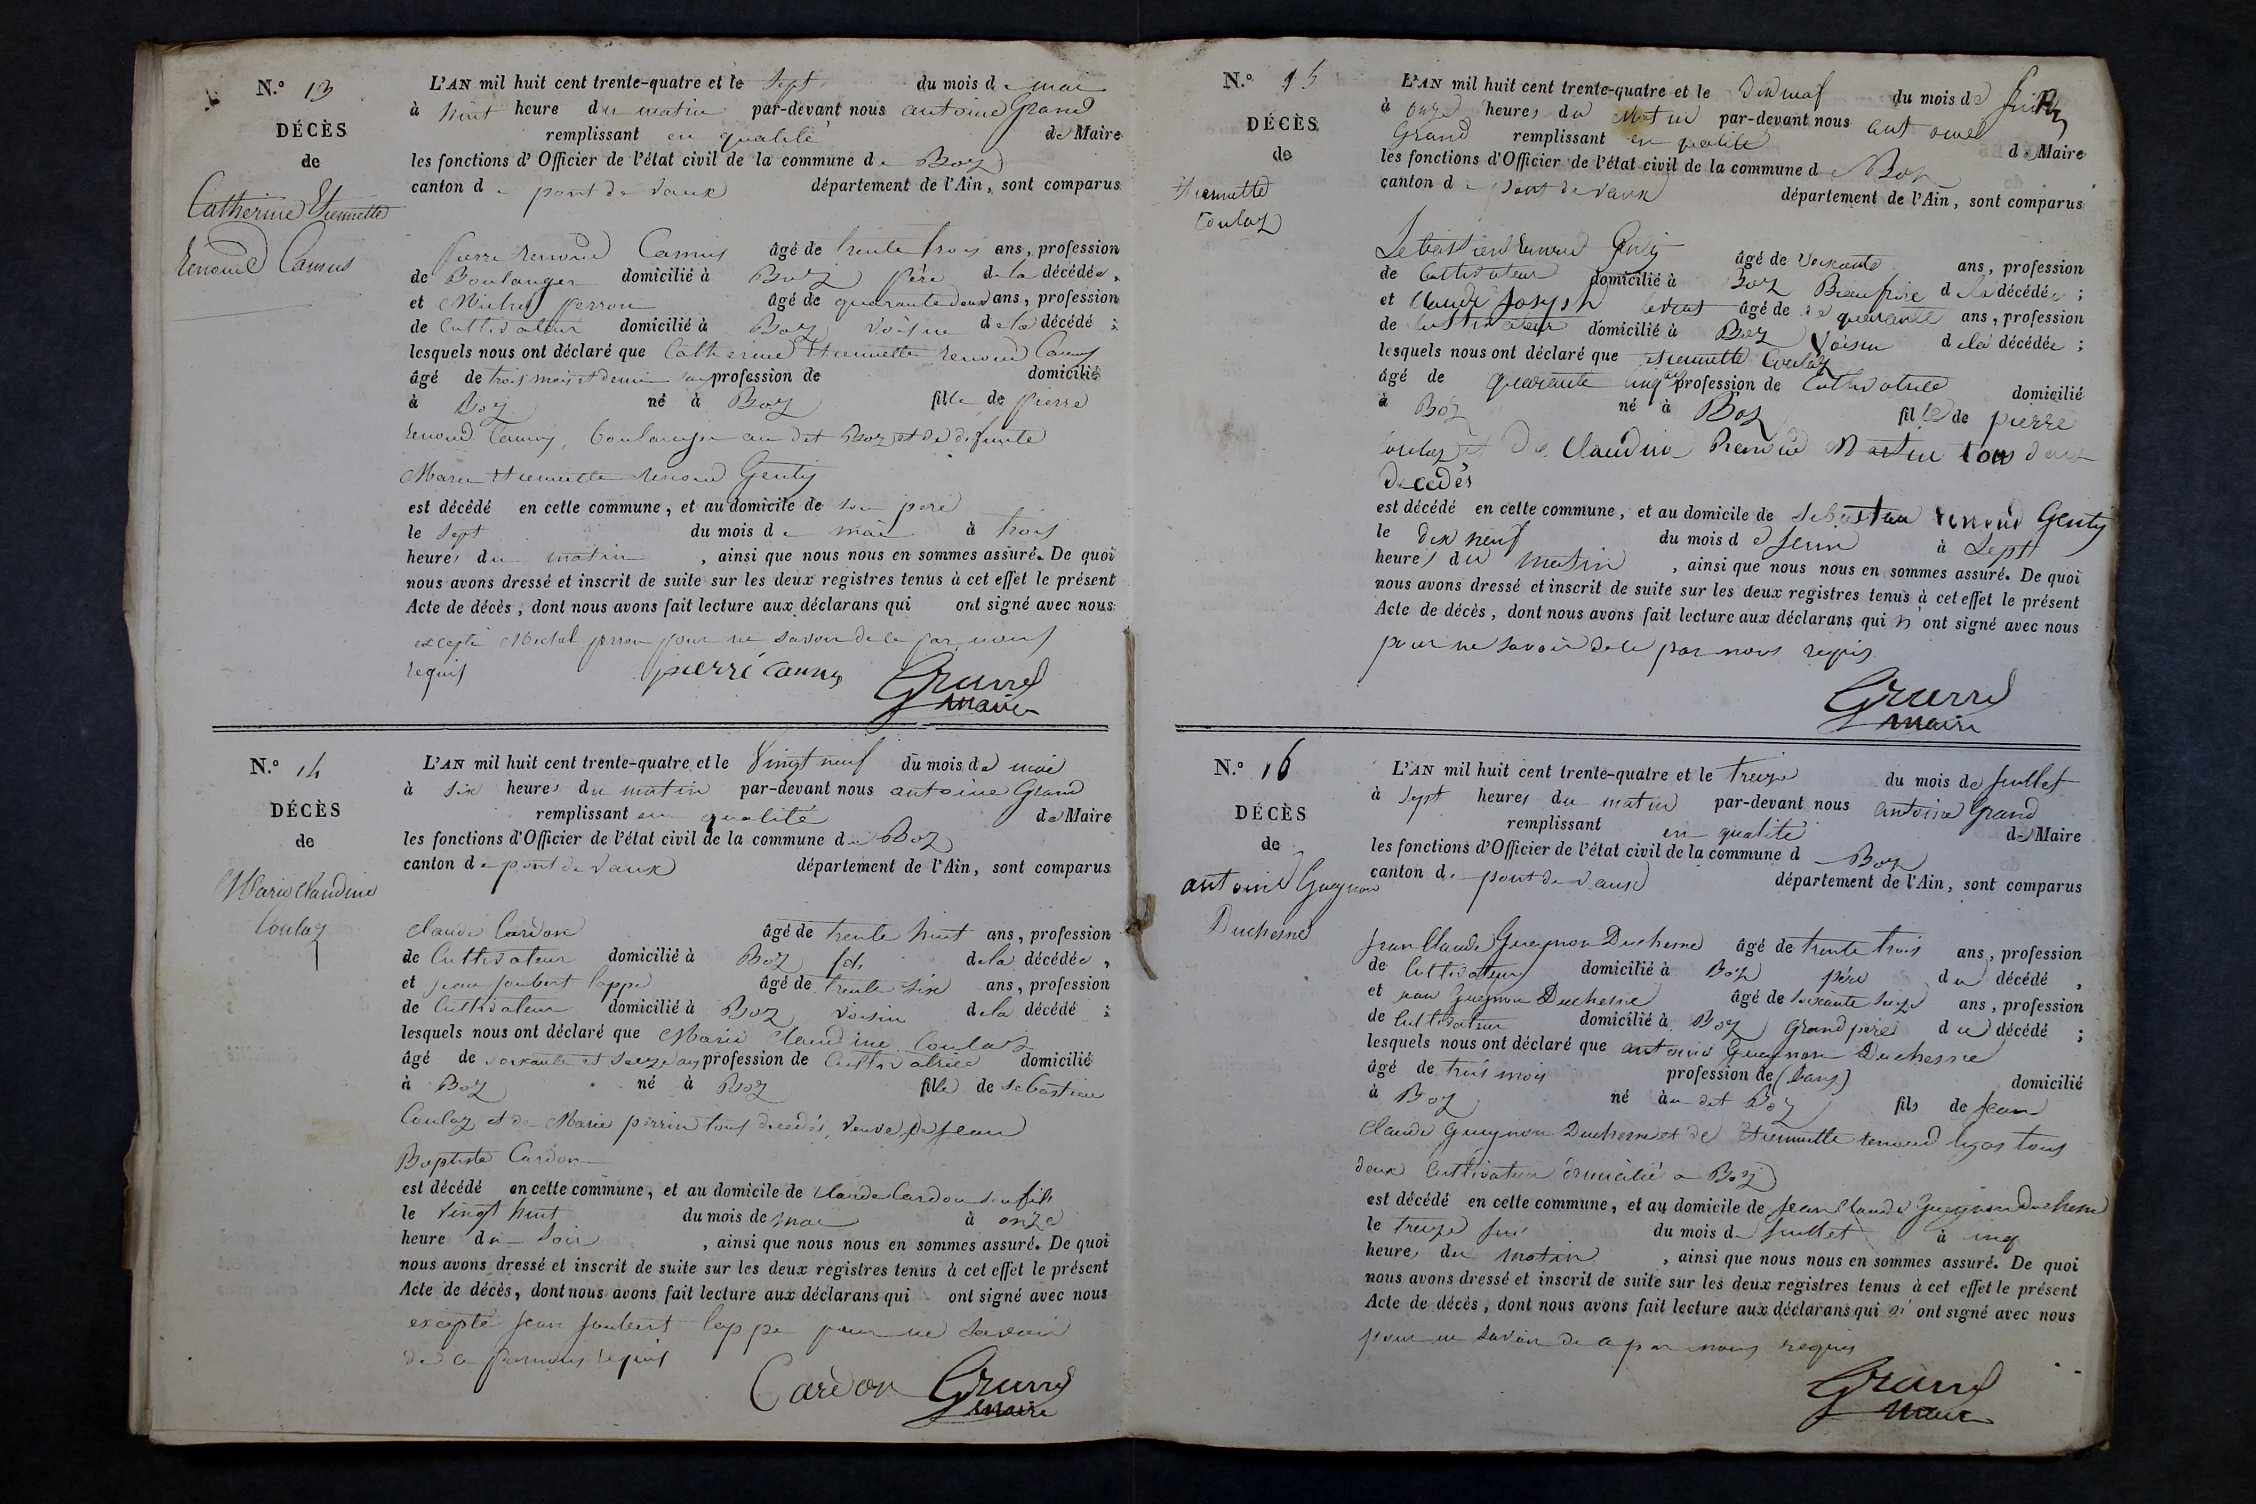 N.° 13
DÉCÈS
de
Catherine Etiennette
Renoud Camus
L'AN mil huit cent trente-quatre et le Sept du mois de mai
à huit heure du matin par-devant nous antoine Grand
remplissant en qualité de Maire
les fonctions d'Officier de l'état civil de la commune de Boz
canton de pont de vaux département de l'Ain, sont comparus
pierre renoud Camus âgé de trente trois ans, profession
de Boulanger domicilié à Boz père de la décédée,
et Michel perron âgé de quarante deux ans, profession
de Cultivateur domicilié à Boz voisin de la décédé ;
lesquels nous ont déclaré que Catherine Etiennette renoud Camus
âgé de trois mois et demi sans profession de domicilié
à Boz né à Boz fille de pierre
renoud Camus, boulanger au dit Boz et de defunte
Marie Etiennette renoud Genty
est décédé en cette commune, et au domicile de son pere
le sept du mois de mai à trois
heures du matin , ainsi que nous nous en sommes assuré. De quoi
nous avons dressé et inscrit de suite sur les deux registres tenus à cet effet le présent
Acte de décès, dont nous avons fait lecture aux déclarans qui ont signé avec nous
excepté Michel perron pour ne savoir de ce par nous
requis pierre camus Grand
maire
N.° 14
DÉCÈS
de
Marie Claudine
Coulaz
L'AN mil huit cent trente-quatre et le Vingt neuf du mois de mai
à six heures du matin par-devant nous antoine Grand
remplissant en qualité de Maire
les fonctions d'Officier de l'état civil de la commune de Boz
canton de pont de vaux département de l'Ain, sont comparus
claude Cardon âgé de trente huit ans, profession
de Cultivateur domicilié à Boz fils de la décédée,
et jean joubert lappe âgé de trente six ans, profession
de Cultivateur domicilié à Boz voisin de la décédé ;
lesquels nous ont déclaré que Marie Claudine Coulaz
âgé de soixante et seize ans profession de Cultivatrice domicilié
à Boz né à Boz fille de sebastien
Coulaz et de Marie perrin tous decedés, veuve de Jean
Baptiste Cardon
est décédé en cette commune, et au domicile de claude Cardon son fils
le vingt huit du mois de mai à onze
heure du soir , ainsi que nous nous en sommes assuré. De quoi
nous avons dressé et inscrit de suite sur les deux registres tenus à cet effet le présent
Acte de décès, dont nous avons fait lecture aux déclarans qui ont signé avec nous
excepté jean joubert lappe pour ne savoir
de ce par nous requis
Cardon Grand
maire
N.° 15
DÉCÈS
de
Etiennette
Coulaz
L'AN mil huit cent trente-quatre et le dix neuf du mois de Juin
à onze heures du matin par-devant nous antoine
Grand remplissant en qualité de Maire
les fonctions d'Officier de l'état civil de la commune de Boz
canton de pont de vaux département de l'Ain, sont comparus
Sebastien renoud Genty âgé de soixante ans, profession
de Cultivateur domicilié à Boz Beaufrère de la décédée ;
et Claude Joseph âgé de quarante ans, profession
de Cultivateur domicilié à Boz Voisin de la décédée ;
lesquels nous ont déclaré que etiennette Coulaz
âgé de quarante cinq ans profession de Cultivatrice domicilié
à Boz né à Boz fille de pierre
coulaz et de Claudine Renoud Martin tous deux
decedés
est décédé en cette commune, et au domicile de sebastien renoud Genty
le dix neuf du mois de juin à sept
heures du matin , ainsi que nous nous en sommes assuré. De quoi
nous avons dressé et inscrit de suite sur les deux registres tenus à cet effet le présent
Acte de décès, dont nous avons fait lecture aux déclarans qui n'ont signé avec nous
pour ne savoir de ce par nous requis
Grand
maire
N.° 16
DÉCÈS
de
antoine Guegnon
Duchesne
L'AN mil huit cent trente-quatre et le treize du mois de juillet
à sept heures du matin par-devant nous antoine Grand
remplissant en qualité de Maire
les fonctions d'Officier de l'état civil de la commune d Boz
canton de pont de vaux département de l'Ain, sont comparus
jean Claude Guegnon Duchesne âgé de trente trois ans, profession
de Cultivateur domicilié à Boz père du décédé,
et jean Guegnon Duchesne âgé de soixante seize ans, profession
de Cultivateur domicilié à Boz Grand père du décédé ;
lesquels nous ont déclaré que antoine Guegnon Duchesne
âgé de trois mois profession de (sans) domicilié
à Boz né au dit Boz fils de jean
claude Guegnon Duchesne et de Etiennette renoud tous
deux cultivateur domicilié a Boz
est décédé en cette commune, et au domicile de jean claude Guegnon Duchesne
le treize du mois de juillet à cinq
heures du matin , ainsi que nous nous en sommes assuré. De quoi
nous avons dressé et inscrit de suite sur les deux registres tenus à cet effet le présent
Acte de décès, dont nous avons fait lecture aux déclarans qui n'ont signé avec nous
pour ne savoir de ce par nous requis
Grand
maire